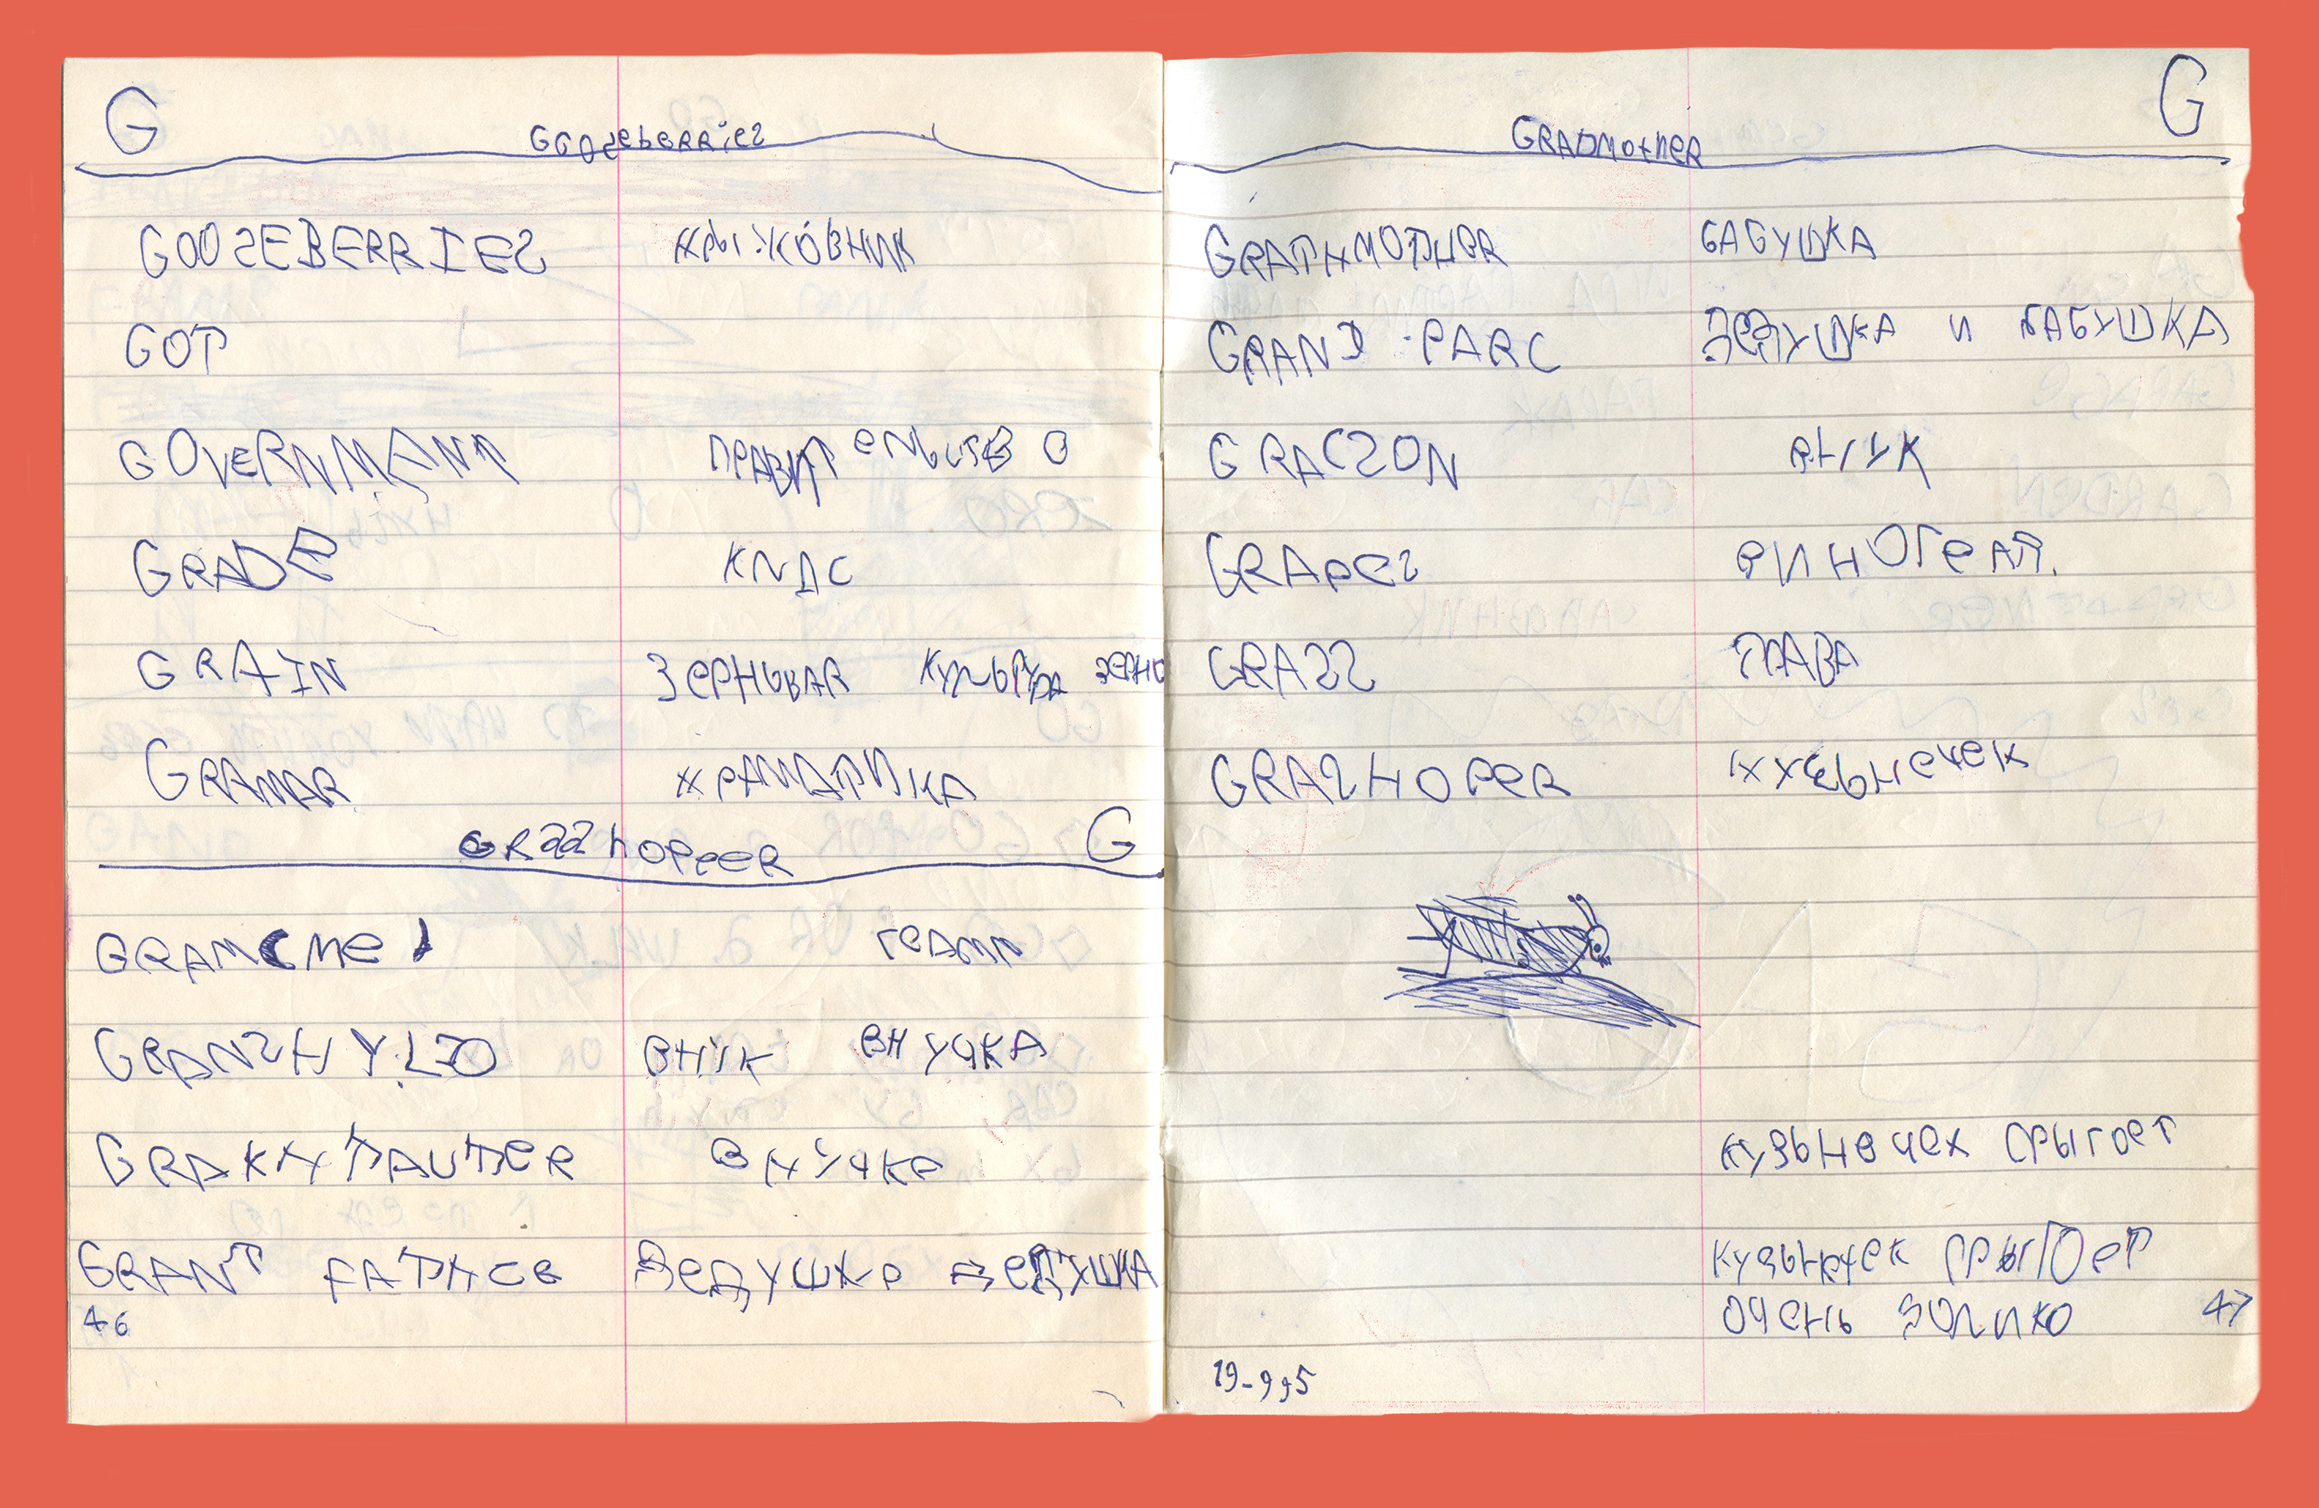 G
GGOzeberries
GOOSEBERRIES крыжовник
GOT
GOVERNMANT правительство
GRADE КЛАС
GRAIN зерньвая культура зерно
GRAMAR храматика
GRASSHOPeeR G
GRAMCME грамм
GRANSHYLD внук внучка
внучка
GRANT FATHCE дедушка дедушка
46
G
GRADMOTHER
GRATHMOTHER БАБУШКА
GRAND PARC дедушка и БАБУШКА
GRACSON внук
GRAPES виноград.
GRASS трава
GRASHOPER кузьнечек
кузьнечек прыгоет
кузьнечек прыгоет
очень золико 47
19-995